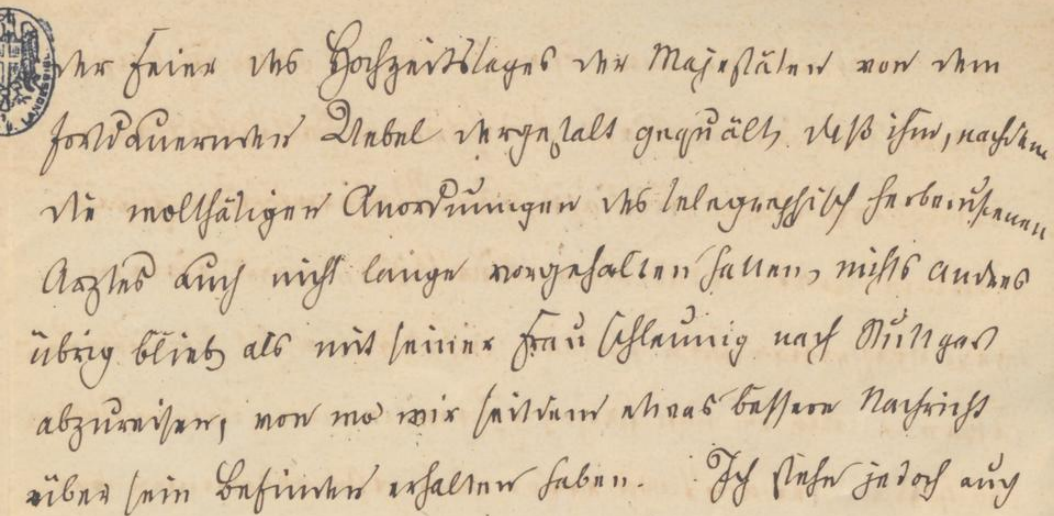 der Feier des Hochzeitstages der Majestäten von dem
fortdauernden Uebel dergestalt gequält, daß ihm, nachdem
die wolthätigen Anordnungen des telegraphisch herberufenen
Arztes auch nicht lange vorgehalten hatten, nichts anders
übrig blieb, als mit seiner Frau schleunig nach Stuttgart
abzureisen, von wo wir seitdem etwas bessere Nachricht
über sein Befinden erhalten haben. Ich stehe jedoch auch